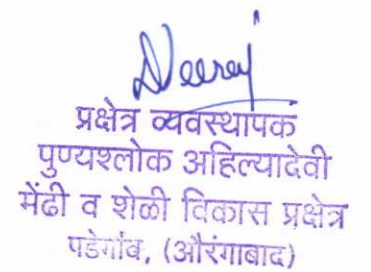 Neeraj
प्रक्षेत्र व्यवस्थापक
पुण्यश्लोक अहिल्यादेवी
मेंढी व शेळी विकास प्रक्षेत्र
पडेगांव, (औरंगाबाद)